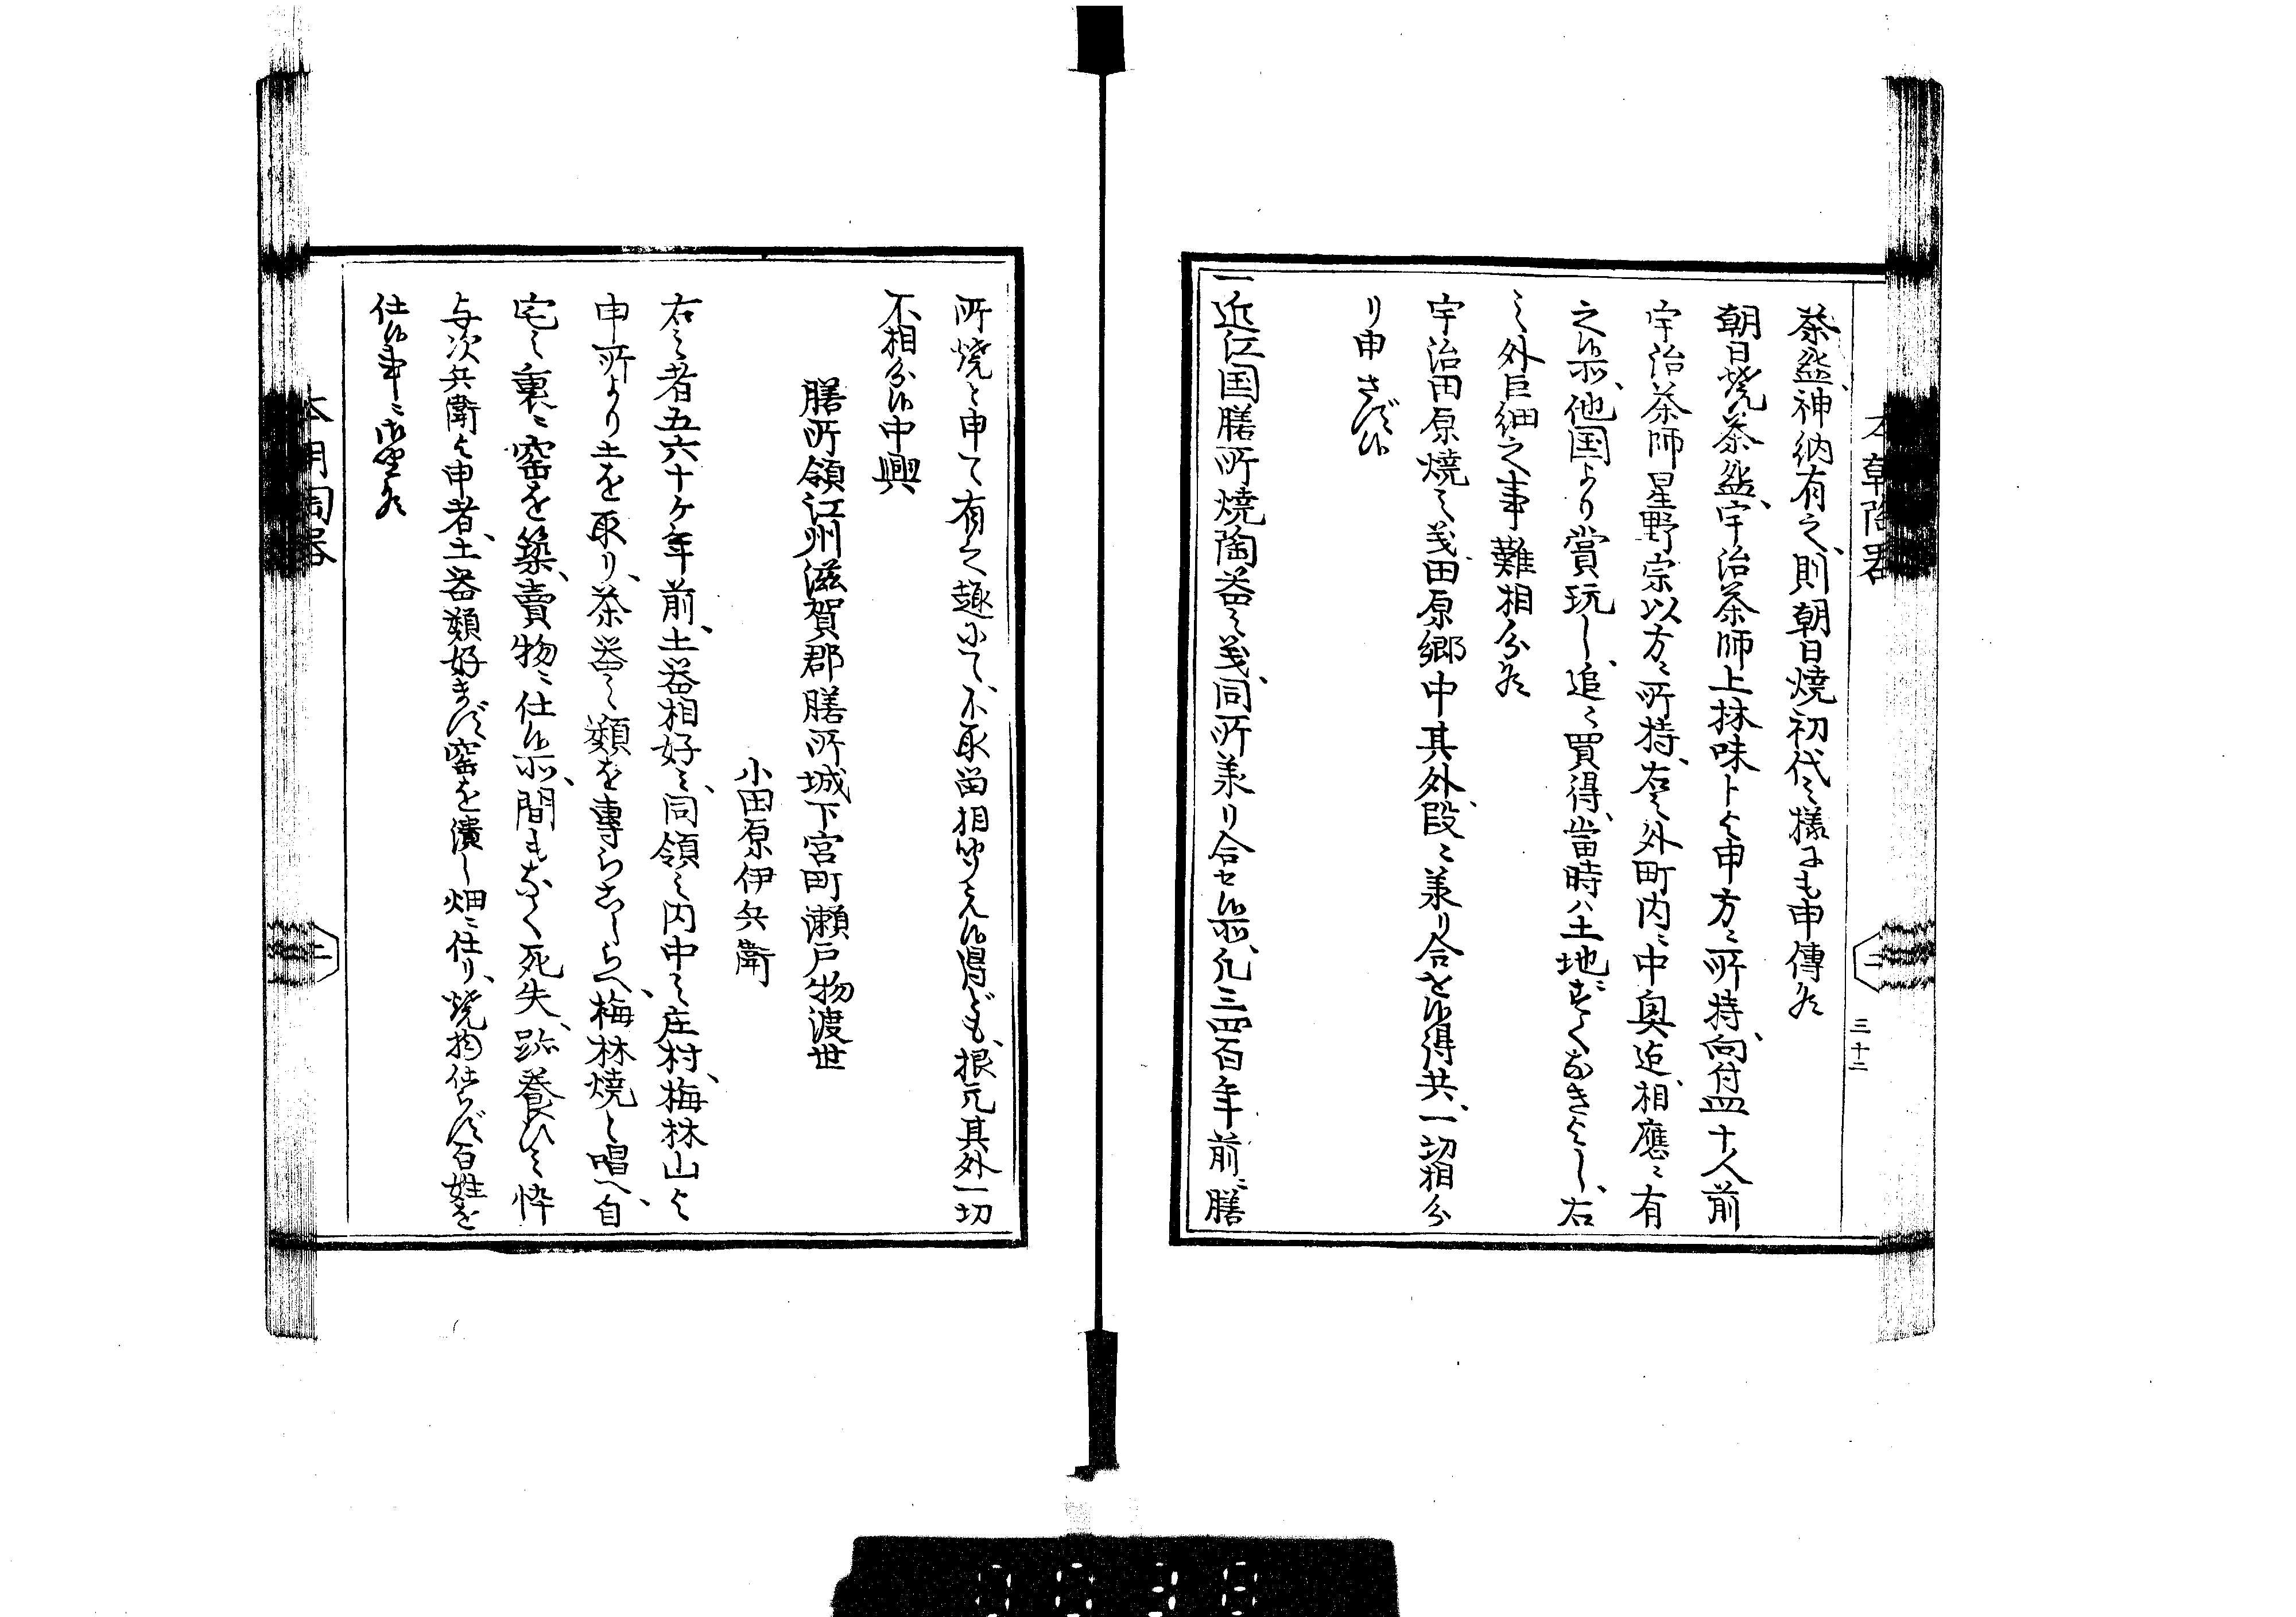 本朝陶器
三十二
茶盌、神納有之、則朝日焼初代之様にも申傳候
朝日焼茶盌、宇治茶師上林味卜と申方ニ所持、向付皿十人前
宇治茶師星野宗以方ニ所持、右之外町内ニ中奥迄、相應ニ有
之候処、他国より賞玩し、追々買得、當時ハ土地ずくなきよし、右
之外巨細之事難相分候
宇治田原焼之義、田原郷中其外、段々承り合せ候得共、一切相分
り申さず候
一近江国膳所焼陶器之義、同所承り合セ候処、凡三四百年前、膳
所焼と申て有之趣にて、不取留相聞え候得ども、根元其外一切
不相分候中興
膳所領江州滋賀郡膳所城下宮町瀬戸物渡世
小田原伊兵衛
右之者五六十ヶ年前、土器相好ミ、同領之内中之庄村、梅林山と
申所より土を取り、茶器之類を専らこしらへ、梅林焼と唱へ、自
宅之裏ニ窑を築、賣物ニ仕候処、間もなく死失、跡養ひ之悴
与次兵衛と申者、土器類好まず、窑を潰し畑ニ仕り、焼物仕らず、百姓を
仕候事ニ御座候